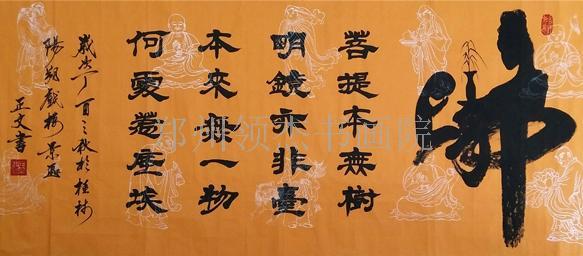 佛
菩提本無樹
明鏡亦非臺
本來無一物
何處惹塵埃
歲次丁酉之秋於桂林
陽朔戲樓景區
正文書
郑州领杰书画院